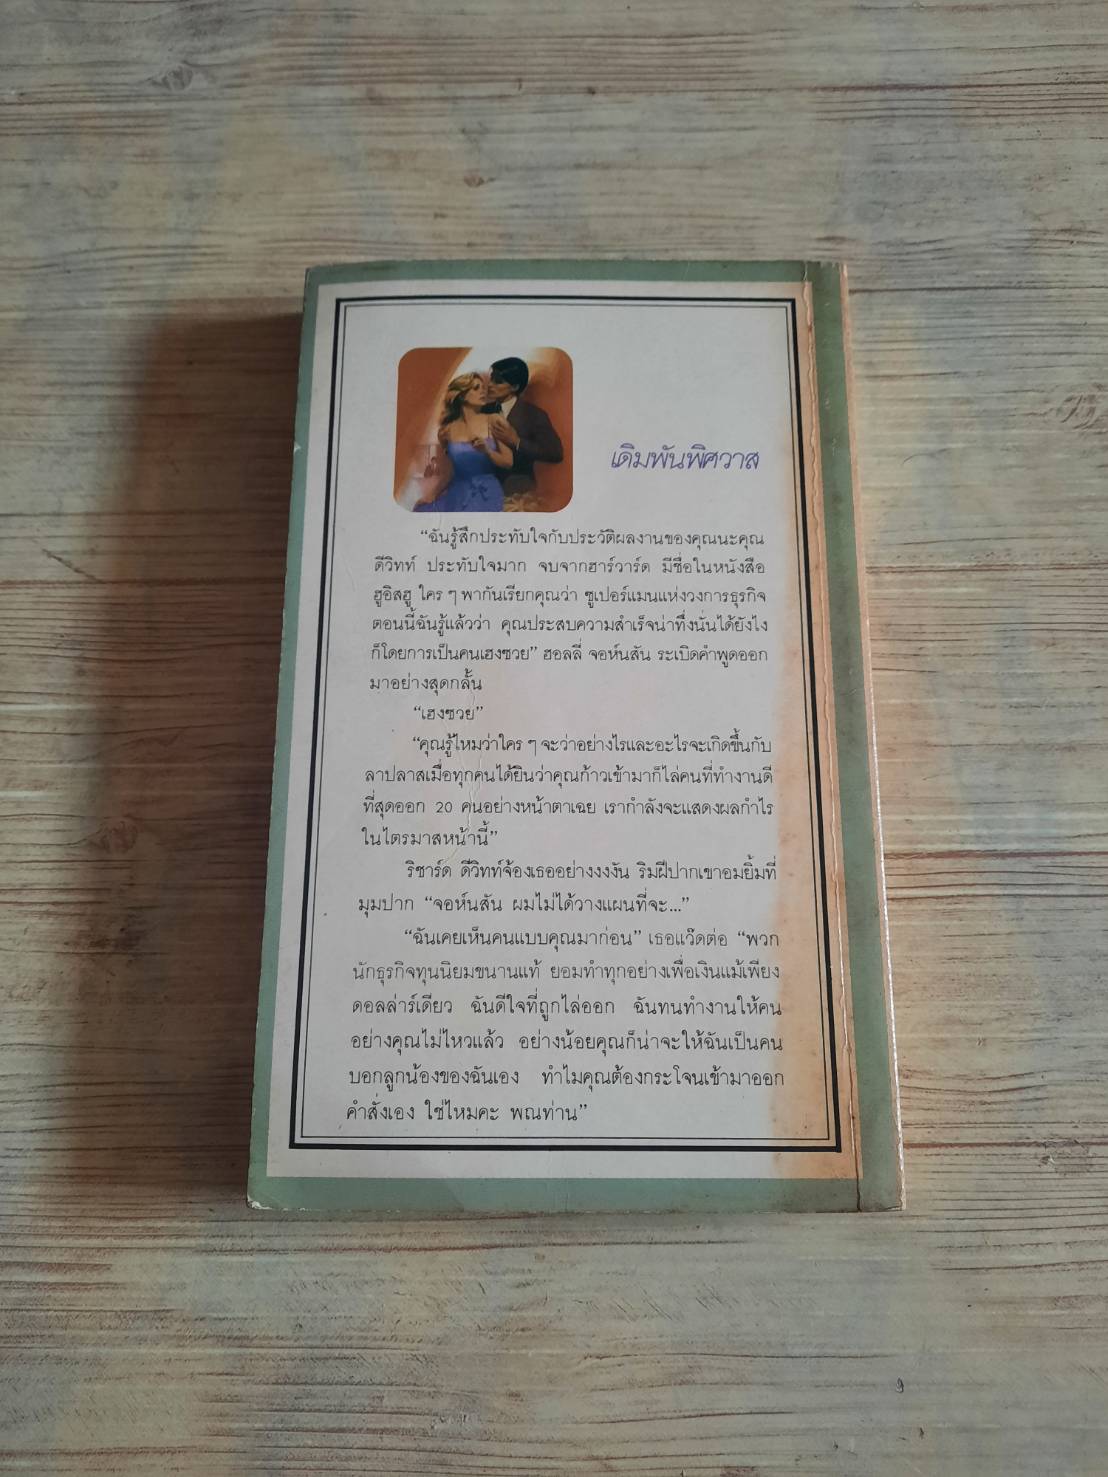 เดิมพันพิศวาส
“ฉันรู้สึกประทับใจกับประวัติผลงานของคุณนะคุณ
ดีวิทท์ ประทับใจมาก จบจากฮาร์วาร์ด มีชื่อในหนังสือ
ฮูอิสฮู ใคร ๆ พากันเรียกคุณว่า ซูเปอร์แมนแห่งวงการธุรกิจ
ตอนนี้ฉันรู้แล้วว่า คุณประสบความสำเร็จน่าทึ่งนั่นได้ยังไง
ก็โดยการเป็นคนเฮงซวย” ฮอลลี่ จอห์นสัน ระเบิดคำพูดออก
มาอย่างสุดกลั้น
“เฮงซวย”
“คุณรู้ไหมว่าใคร ๆ จะว่าอย่างไรและอะไรจะเกิดขึ้นกับ
ลาปลาสเมื่อทุกคนได้ยินว่าคุณก้าวเข้ามาก็ไล่คนที่ทำงานดี
ที่สุดออก 20 คนอย่างหน้าตาเฉย เรากำลังจะแสดงผลกำไร
ในไตรมาสหน้านี้”
ริชาร์ด ดีวิทท์จ้องเธออย่างงงงัน ริมฝีปากเขาอมยิ้มที่
มุมปาก “จอห์นสัน ผมไม่ได้วางแผนที่จะ...”
“ฉันเคยเห็นคนแบบคุณมาก่อน” เธอแว๊ดต่อ “พวก
นักธุรกิจทุนนิยมขนานแท้ ยอมทำทุกอย่างเพื่อเงินแม้เพียง
ดอลล่าร์เดียว ฉันดีใจที่ถูกไล่ออก ฉันทนทำงานให้คน
อย่างคุณไม่ไหวแล้ว อย่างน้อยคุณก็น่าจะให้ฉันเป็นคน
บอกลูกน้องของฉันเอง ทำไมคุณต้องกระโจนเข้ามาออก
คำสั่งเอง ใช่ไหมคะ พณท่าน”